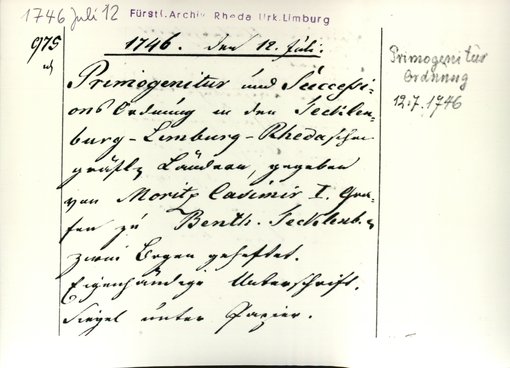 1746 Juli 12 Fürstl. Archiv Rheda Urk. Limburg
975
1746. den 12. Juli.
Primogenitur und Successi-
ons Ordnung in den Tecklen-
burg-Limburg-Rhedaschen
gräfl. Ländern, gegeben
von Moritz Casimir I. Gra-
fen zu Benth. Tecklenb.
zwei Bogen geheftet.
Eigenhändige Unterschrift.
Siegel unter Papier.
Primogenitur
Ordnung
12.7.1746